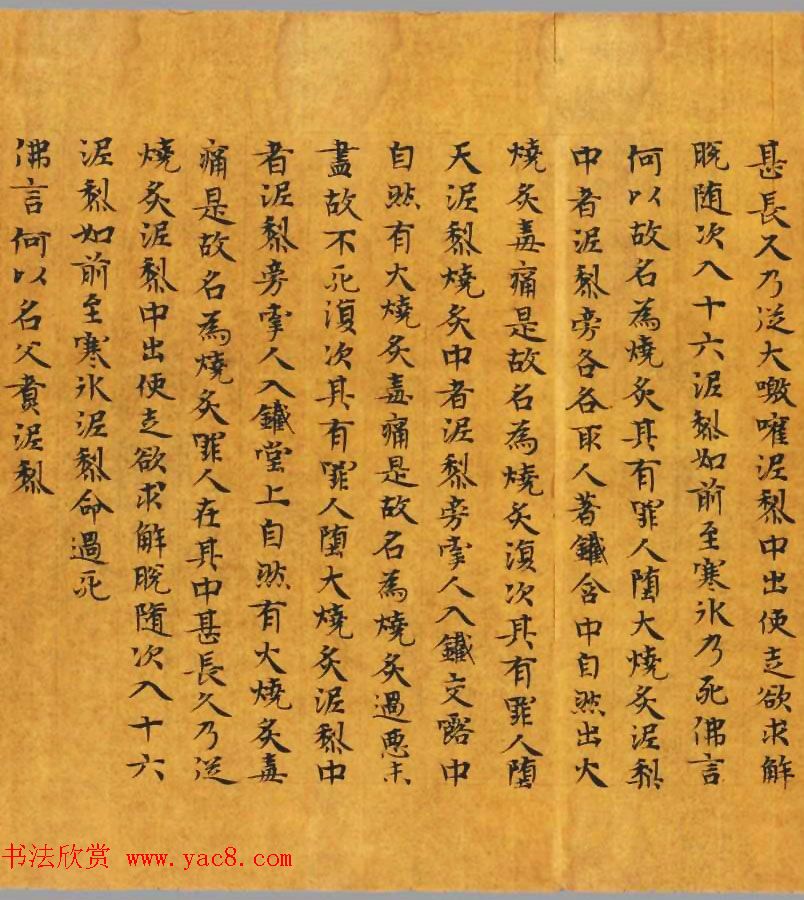 甚長久乃從大噭嚾泥犁中出便走欲求解
脫隨次入十六泥犁如前至寒氷乃死佛言
何以故名為燒炙其有罪人墮大燒炙泥犁
中者泥犁旁各各取人著鐵舍中自然出火
燒炙毒痛是故名為燒炙復次其有罪人墮
天泥犁燒炙中者泥犁旁掌人入鐵交露中
自然有大燒炙毒痛是故名為燒炙過惡未
盡故不死復次其有罪人墮大燒炙泥犁中
者泥犁旁掌人入鐵堂上自然有火燒炙毒
痛是故名為燒炙罪人在其中甚長久乃從
燒炙泥犁中出便走欲求解脫隨次入十六
泥犁如前至寒氷泥犁命過死
佛言何以名父賁泥犁
书法欣赏 www.yac8.com